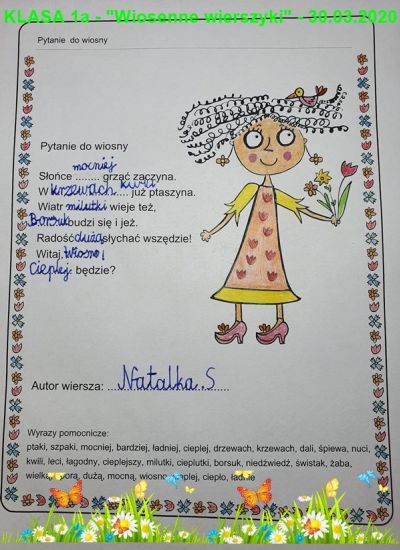 KLASA 1a - "Wiosenne wierszyki" - 30.03.2020
Pytanie do wiosny
Pytanie do wiosny
Słońce mocniej grzać zaczyna.
W krzewach kwili już ptaszyna.
Wiatr milutki wieje też,
Borsuk budzi się i jeż.
Radość dużą słychać wszędzie!
Witaj, wiosno!
Cieplej będzie?
Autor wiersza: Natalka.S
Wyrazy pomocnicze:
ptaki, szpaki, mocniej, bardziej, ładniej, cieplej, drzewach, krzewach, dali, śpiewa, nuci,
kwili, leci, łagodny, cieplejszy, milutki, cieplutki, borsuk, niedźwiedź, świstak, żaba,
dużą, mocną, wiosno, ciepło, ładnie